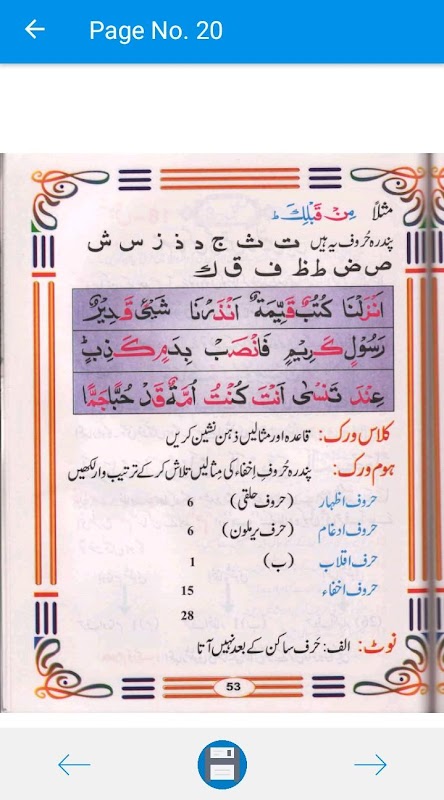 Page No. 20
مثلاً مِنْ قَبْلِكَ ط
پندرہ حُروف یہ ہیں ت ث ج د ذ ز س ش
ص ض ط ظ ف ق ک
اَنْزَلْنَا كُتُبٌ قَيِّمَةٌ اَنْذَرْنَا شَيْئٍ قَدِيْرٌ
رَسُوْلٍ كَرِيْمٍ فَانْصَبْ بِدَمٍ كَذِبٍ
عِنْدَ تَنْسٰى اَنْتَ كُنْتُ اُمَّةٌ قَدْ حُبًّا جَمًّا
کلاس ورک: قاعدہ اور مثالیں ذہن نشین کریں
ہوم ورک: پندرہ حُروفِ اِخفاء کی مثالیں تلاش کر کے ترتیب وار لکھیں
حروف اظہار (حروف حلقی) 6
حروف ادغام (حرف یرملون) 6
حرف اقلاب (ب) 1
حروف اخفاء 15
28
نوٹ: الف: حَرف ساکن کے بعد نہیں آتا
53